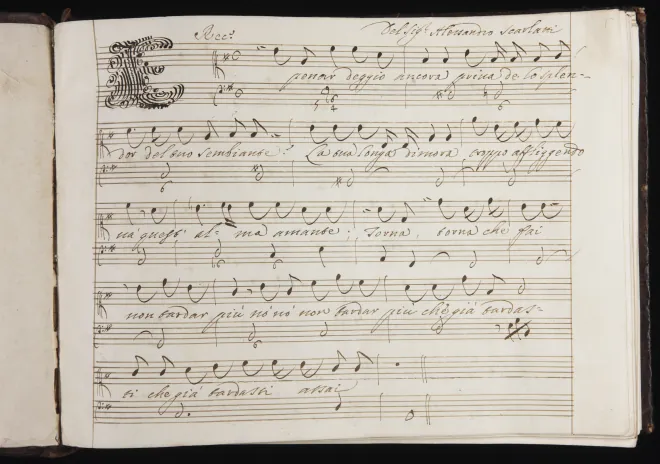 Rec.º Del Sigr. Alessandro Scarlatti
E penar deggio ancora priva de lo splen-
dor del tuo sembiante? La tua longa dimora troppo affliggendo
và quest' al- ma amante; Torna, torna che fai
non tardar più nò nò non tardar più che già tardas-
ti che già tardasti assai